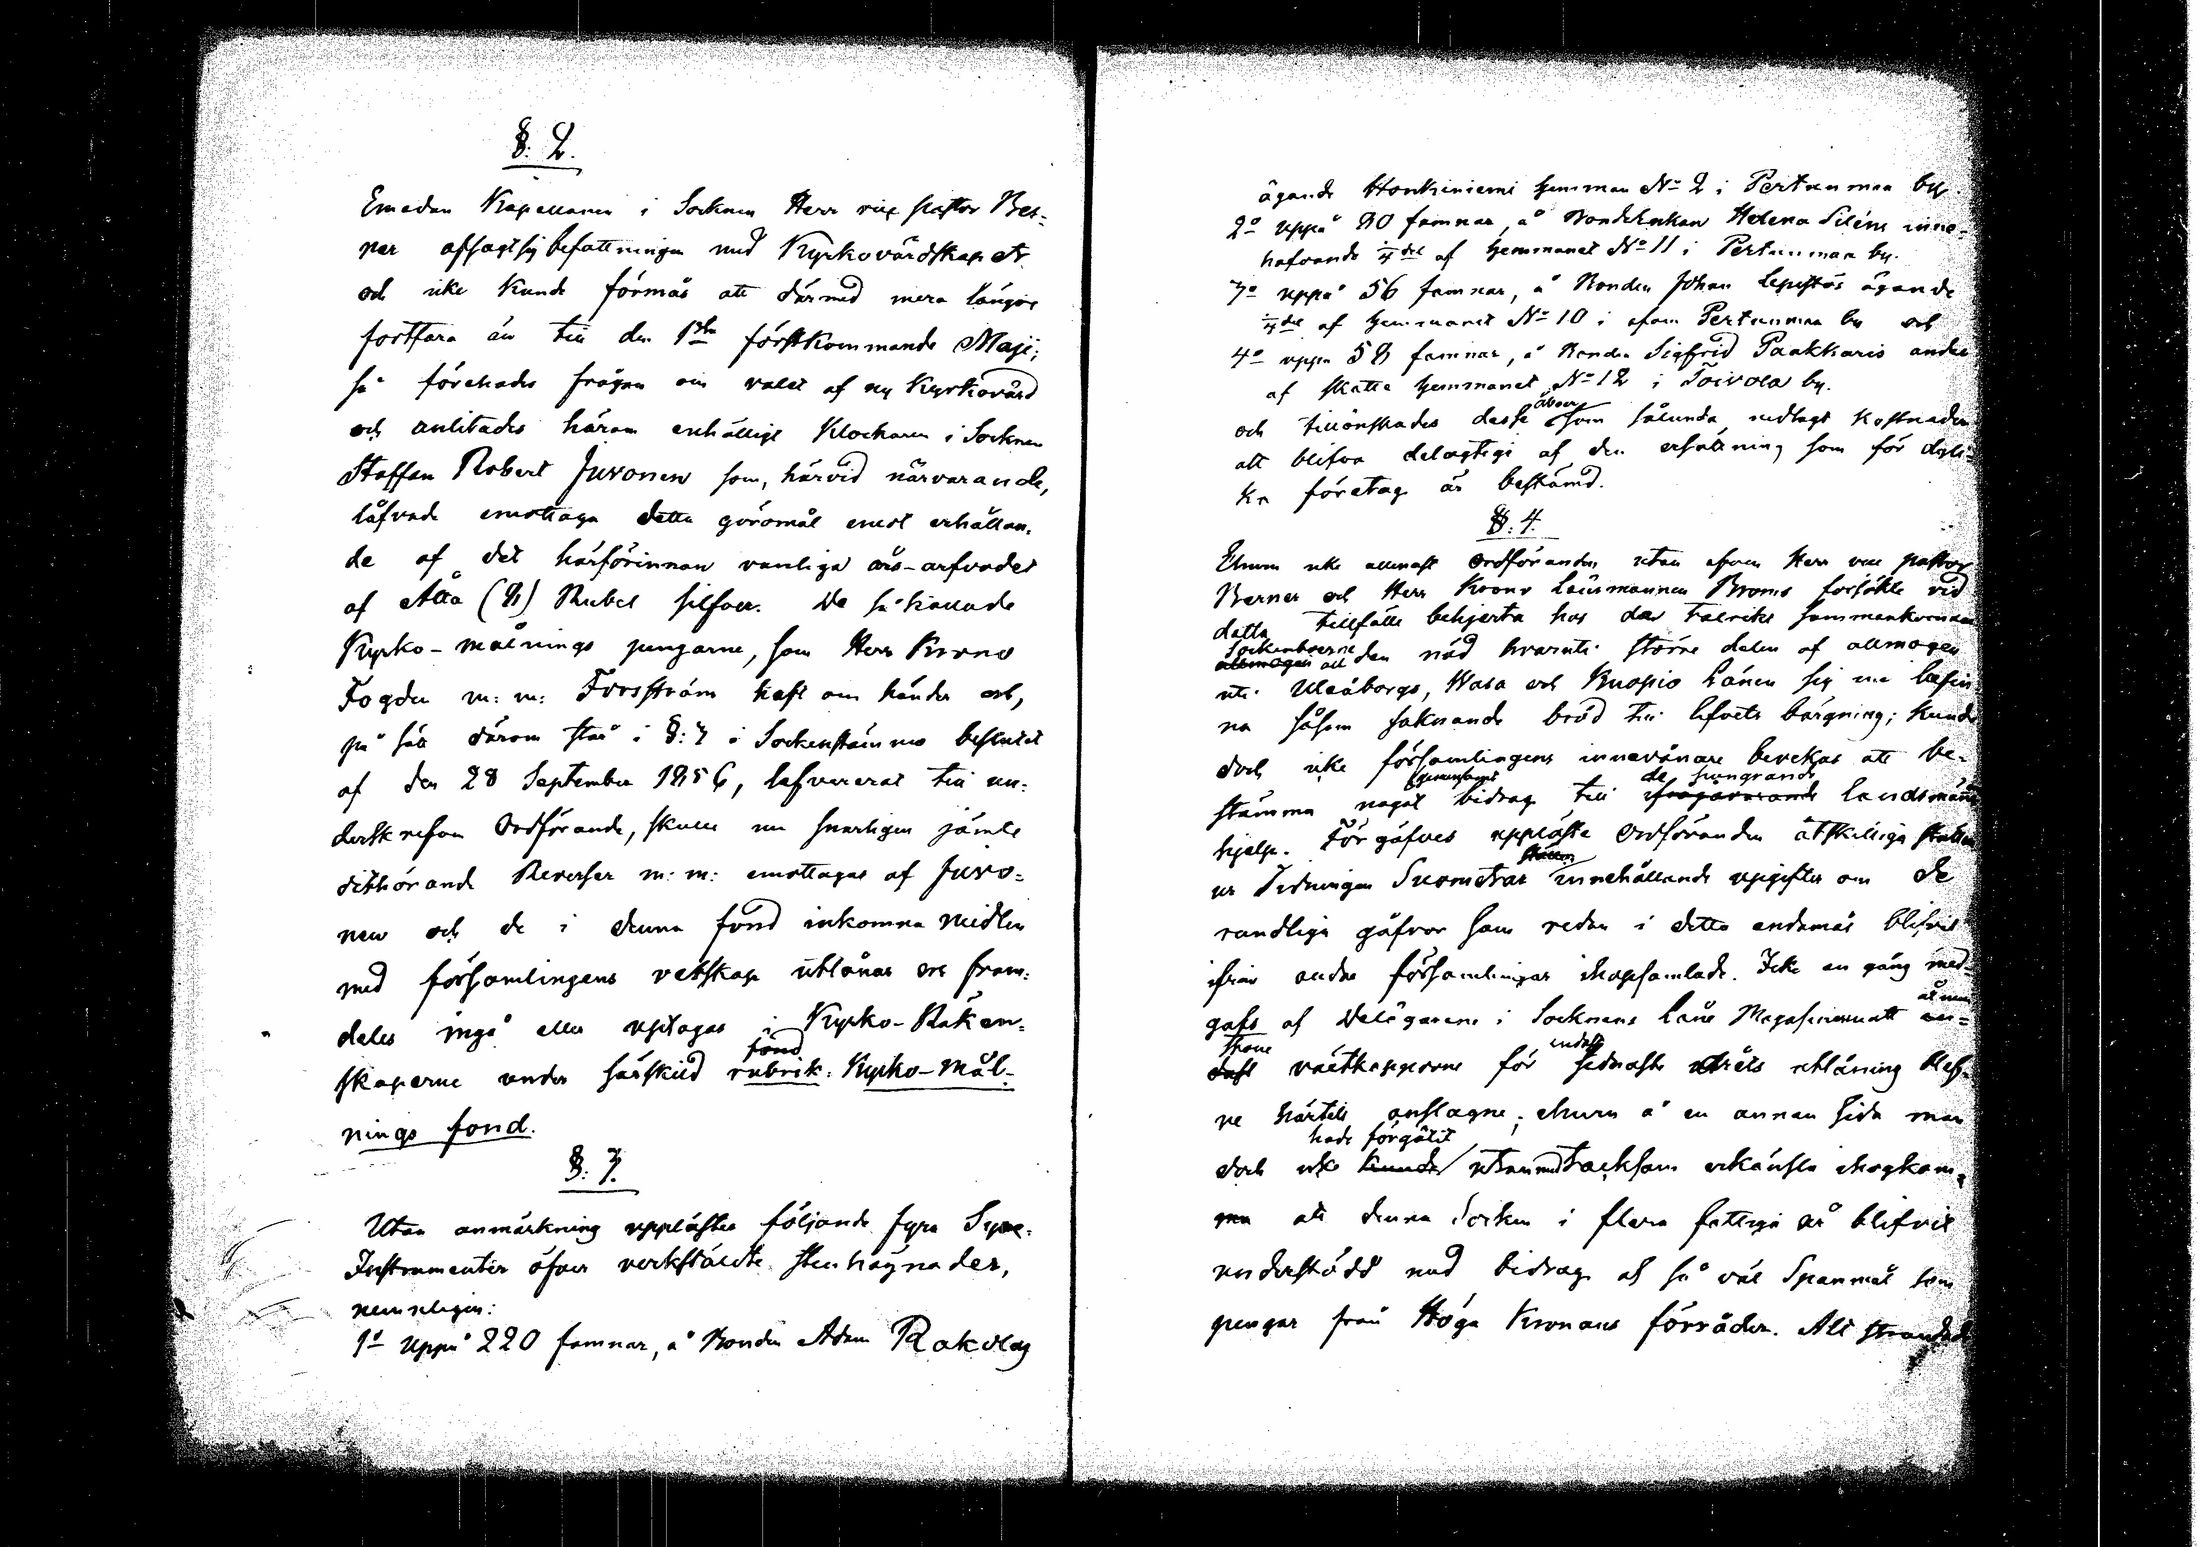 §. 2.
Emedan Kapellanen i Socknen Herr vice pastor Ber-
ner afsagt sig befattningen med Kyrkovärdskapet
och icke kunde förmås att därmed mera längre
fortfara än till den 1sta förstkommande Maji;
så förehades frågan om valet af ny Kyrkovärd
och anlitades härom enhälligt Klockaren i Socknen
Staffan Robert Juvonen som, härvid närvarande,
låfvade emottaga detta göromål emot erhållan-
de af det härförinnan vanliga års-arfvodet
af Åtta (8) Rubel silfver. De så kallade
Kyrko-målnings pengarne, som Herr Krono
Fogden m: m: Forsström haft om händer och,
på sätt därom står i §: 7 i Sockenstämmo beslutet
af den 28 September 1856, lefvererat till un-
derskrefven Ordförande, skulle nu snarligen jämte
dithörande Reverser m: m: emottagas af Juvo-
nen och de i denna fond inkomna medlen
med församlingens vetskap utlånas och fram-
deles ingå eller upptagas i Kyrko-Räken-
skaperne under särskild rubrik: Kyrko-mål-
fond
nings fond.
§. 3.
Utan anmärkning upplästes följande fyra Syne-
Instrumenter öfver verkstälde stenhägnader,
nemneligen:
1o Uppå 220 famnar, å Bonden Adam Rakolas
ägande Honkiniemi hemman No 2 i Pertunmaa by.
2o uppå 80 famnar, å Bondeenkan Helena Siléns inne-
hafvande 1/4 del af hemmanet No 11 i Pertunmaa by.
3o uppå 56 famnar, å Bonden Johan Lepistös ägande
1/4 del af hemmanet No 10 i ofvan Pertunmaa by och
4o uppå 58 famnar, å Bonden Sigfrid Paakkaris andel
af skatte hemmanet No 12 i Toivola by.
och tillönskades desse åboer som sålunda nedlagt kostnader
att blifva delagtige af den ersättning som för dyli-
ka företag är bestämd.
§. 4.
Ehuru icke allenast Ordföranden utan äfven Herr vice pastor
Berner och Herr Krono Länsmannen Broms försökte vid
detta tillfälle behjerta hos der talrikt sammankomna
Sockenboerne
allmogen all den nöd hvaruti större delen af allmogen
uti Uleåborgs, Wasa och Kuopio Länen sig nu befin-
na såsom saknande bröd till lifvets bärgning; kunde
dock icke församlingens innevånare bevekas att be-
gemensamt de hungrande
stämma något bidrag till ifrågavarande landsmäns
hjelp. Förgäfves uppläste Ordföranden åtskilliga ställen
ställen
ur Tidningen Suometar innehållande upgifter om de
rundliga gåfvor som redan i detta endamål blifvit
ifrån andra församlingar ihopsamlade. Icke en gång med-
åtmin
gafs af Delägarene i Socknens Låne Magasinen att en-
stone endast
dast råttkapporne för sednaste årets utlåning blef-
ve härtill anslagne; ehuru å en annan sida man
hade förgätit
dock icke kunde utan med tacksam erkänsla ihogkom-
ma att denna Socken i flera fattiga år blifvit
understödd med bidrag af så väl Spanmål som
pengar från Höga Kronans förråder. Allt strandade